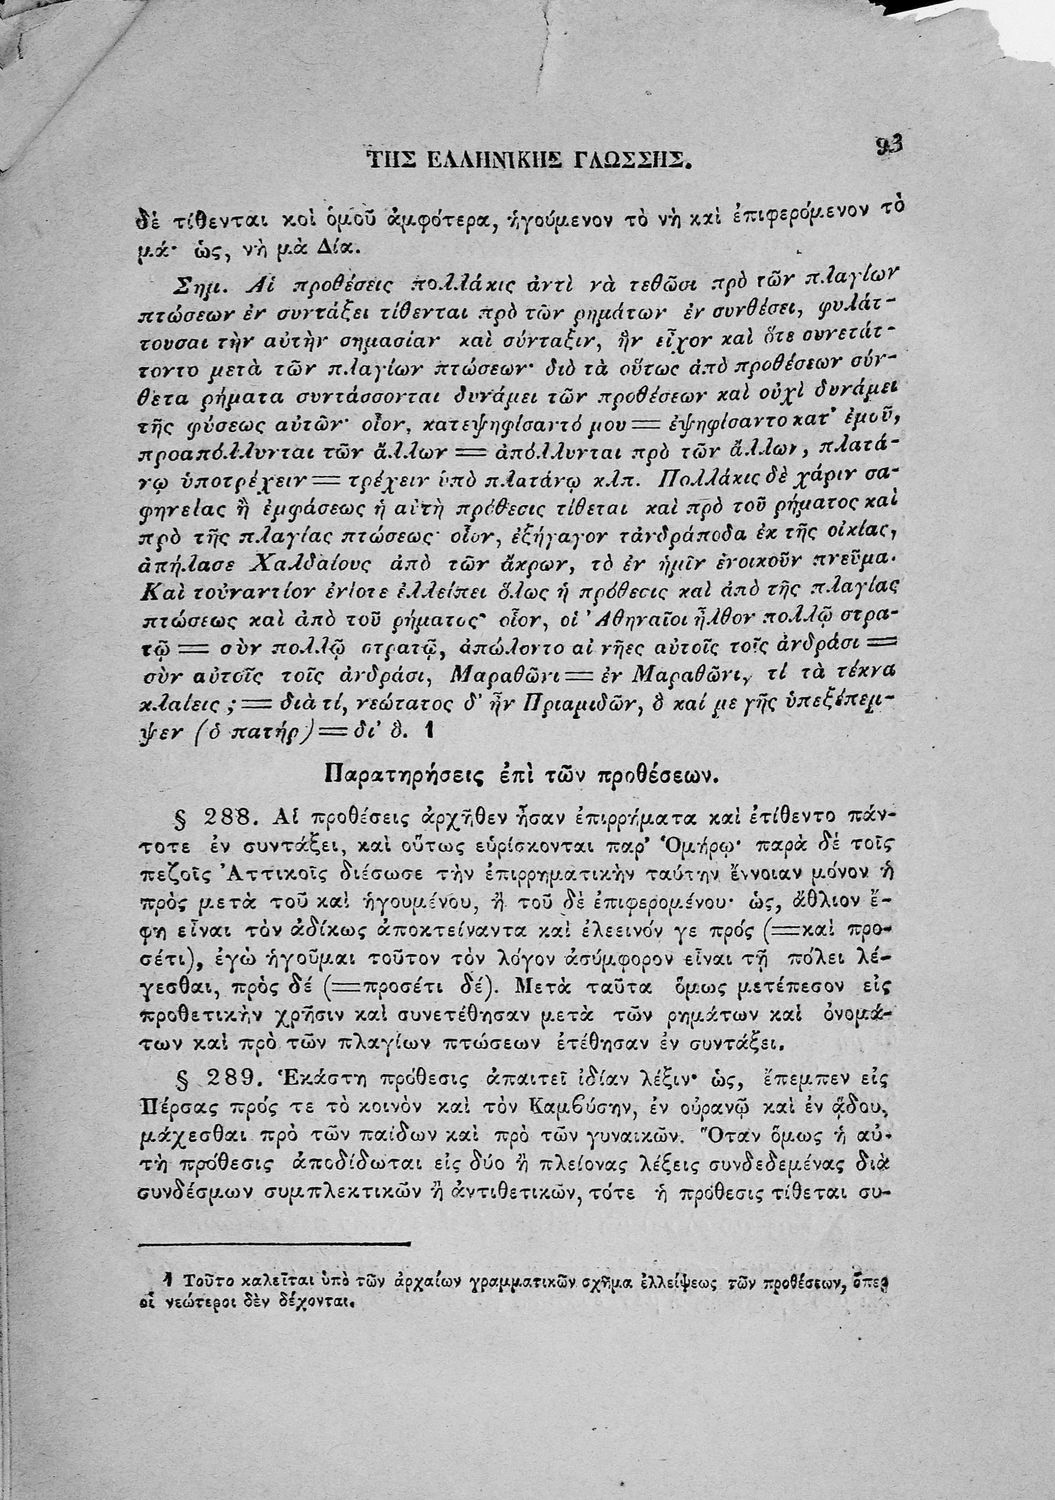 ΤΗΣ ΕΛΛΗΝΙΚΗΣ ΓΛΩΣΣΗΣ. 93
δὲ τίθενται κοὶ ὁμοῦ ἀμφότερα, ἡγούμενον τὸ νὴ καὶ ἐπιφερόμενον τὸ
μά· ὡς, νὴ μὰ Δία.
Σημ. Αἱ προθέσεις πολλάκις ἀντὶ νὰ τεθῶσι πρὸ τῶν πλαγίων
πτώσεων ἐν συντάξει τίθενται πρὸ τῶν ρημάτων ἐν συνθέσει, φυλάτ-
τουσαι τὴν αὐτὴν σημασίαν καὶ σύνταξιν, ἣν εἶχον καὶ ὅτε συνετάτ-
τοντο μετὰ τῶν πλαγίων πτώσεων· διὸ τὰ οὕτως ἀπὸ προθέσεων σύν-
θετα ρήματα συντάσσονται δυνάμει τῶν προθέσεων καὶ οὐχὶ δυνάμει
τῆς φύσεως αὐτῶν· οἷον, κατεψηφίσαντό μου = ἐψηφίσαντο κατ' ἐμοῦ,
προαπόλλυνται τῶν ἄλλων = ἀπόλλυνται πρὸ τῶν ἄλλων, πλατά-
νῳ ὑποτρέχειν = τρέχειν ὑπὸ πλατάνῳ κλπ. Πολλάκις δὲ χάριν σα-
φηνείας ἢ ἐμφάσεως ἡ αὐτὴ πρόθεσις τίθεται καὶ πρὸ τοῦ ρήματος καὶ
πρὸ τῆς πλαγίας πτώσεως· οἷον, ἐξήγαγον τἀνδράποδα ἐκ τῆς οἰκίας,
ἀπήλασε Χαλδαίους ἀπὸ τῶν ἄκρων, τὸ ἐν ἡμῖν ἐνοικοῦν πνεῦμα.
Καὶ τοὐναντίον ἐνίοτε ἐλλείπει ὅλως ἡ πρόθεσις καὶ ἀπὸ τῆς πλαγίας
πτώσεως καὶ ἀπὸ τοῦ ρήματος· οἷον, οἱ Ἀθηναῖοι ἦλθον πολλῷ στρα-
τῷ = σὺν πολλῷ στρατῷ, ἀπώλοντο αἱ νῆες αὐτοῖς τοῖς ἀνδράσι =
σὺν αὐτοῖς τοῖς ἀνδράσι, Μαραθῶνι = ἐν Μαραθῶνι, τί τὰ τέκνα
κλαίεις ; = διὰ τί, νεώτατος δ' ἦν Πριαμιδῶν, ὃ καί με γῆς ὑπεξέπεμ-
ψεν (ὁ πατήρ) = δι' ὃ. 1
Παρατηρήσεις ἐπὶ τῶν προθέσεων.
§ 288. Αἱ προθέσεις ἀρχῆθεν ἦσαν ἐπιρρήματα καὶ ἐτίθεντο πάν-
τοτε ἐν συντάξει, καὶ οὕτως εὑρίσκονται παρ' Ὁμήρῳ· παρὰ δὲ τοῖς
πεζοῖς Ἀττικοῖς διέσωσε τὴν ἐπιρρηματικὴν ταύτην ἔννοιαν μόνον ἡ
πρὸς μετὰ τοῦ καὶ ἡγουμένου, ἢ τοῦ δὲ ἐπιφερομένου· ὡς, ἄθλιον ἔ-
φη εἶναι τὸν ἀδίκως ἀποκτείναντα καὶ ἐλεεινόν γε πρός (= καὶ προ-
σέτι), ἐγὼ ἡγοῦμαι τοῦτον τὸν λόγον ἀσύμφορον εἶναι τῇ πόλει λέ-
γεσθαι, πρὸς δέ (= προσέτι δέ). Μετὰ ταῦτα ὅμως μετέπεσον εἰς
προθετικὴν χρῆσιν καὶ συνετέθησαν μετὰ τῶν ρημάτων καὶ ὀνομά-
των καὶ πρὸ τῶν πλαγίων πτώσεων ἐτέθησαν ἐν συντάξει.
§ 289. Ἑκάστη πρόθεσις ἀπαιτεῖ ἰδίαν λέξιν· ὡς, ἔπεμπεν εἰς
Πέρσας πρός τε τὸ κοινὸν καὶ τὸν Καμβύσην, ἐν οὐρανῷ καὶ ἐν ᾅδου,
μάχεσθαι πρὸ τῶν παίδων καὶ πρὸ τῶν γυναικῶν. Ὅταν ὅμως ἡ αὐ-
τὴ πρόθεσις ἀποδίδωται εἰς δύο ἢ πλείονας λέξεις συνδεδεμένας διὰ
συνδέσμων συμπλεκτικῶν ἢ ἀντιθετικῶν, τότε ἡ πρόθεσις τίθεται συ-
1 Τοῦτο καλεῖται ὑπὸ τῶν ἀρχαίων γραμματικῶν σχῆμα ἐλλείψεως τῶν προθέσεων, ὅπερ
οἱ νεώτεροι δὲν δέχονται.